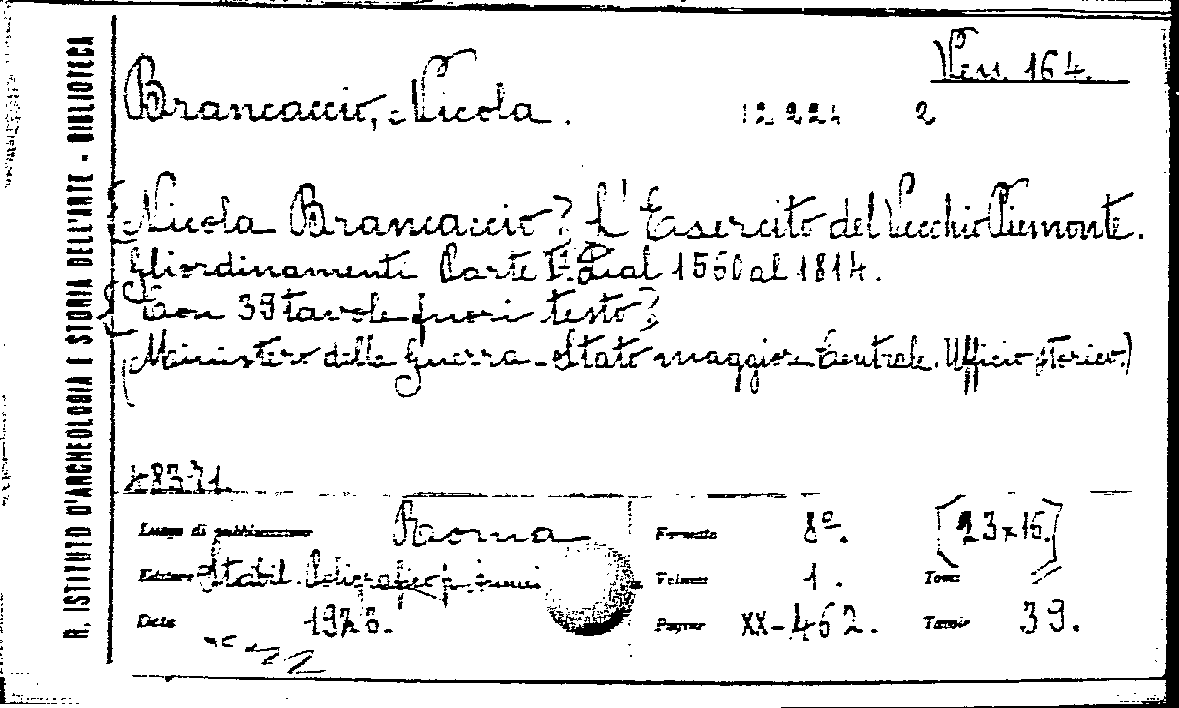 R. ISTITUTO D'ARCHEOLOGIA E STORIA DELL'ARTE - BIBLIOTECA
Ven. 164.
Brancaccio, Nicola.
[Nicola Brancaccio] L'Esercito del Vecchio Piemonte.
Gli ordinamenti Parte Iª. Dal 1560 al 1814.
[Con 39 tavole fuori testo]
(Ministero della Guerra - Stato maggiore Centrale. Ufficio storico.)
Luogo di pubblicazione Roma Formato 8º. [23x16.]
Editore Stabil. Poligrafico p. Volume 1. Tomo
Data Pagine XX-462. Tavole 39.